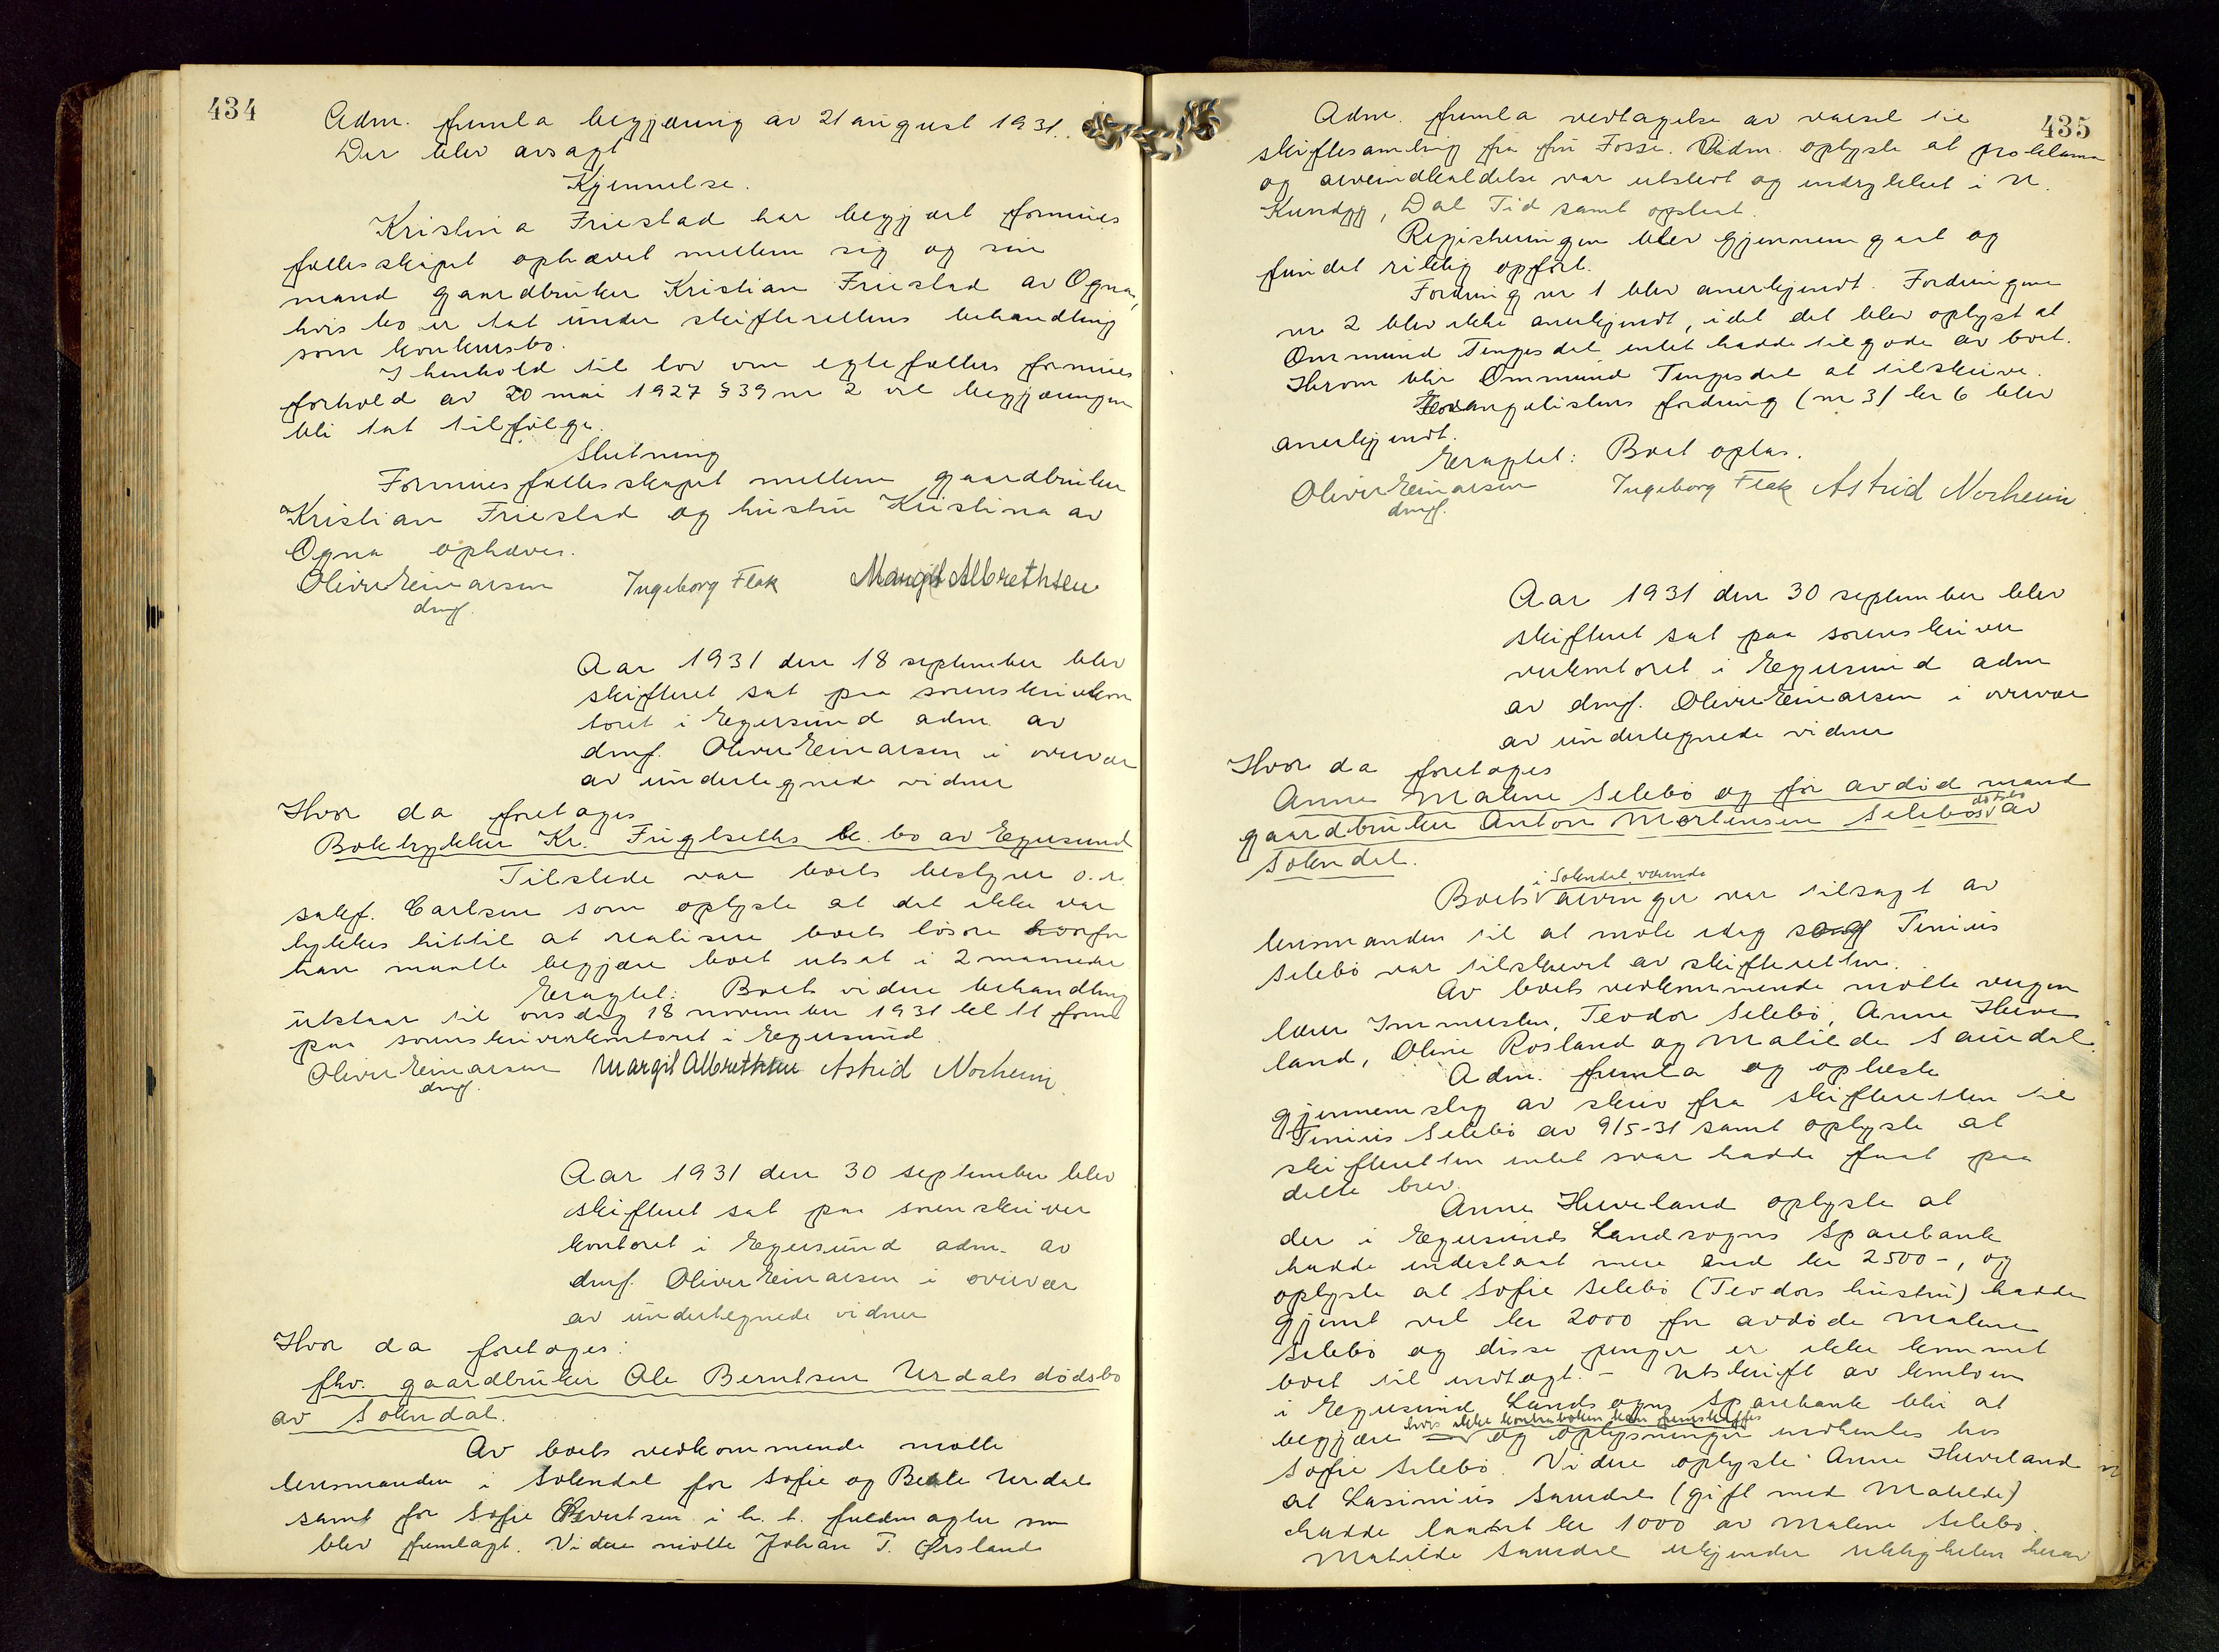 434
Adm. fremla begjæring av 21 august 1931.
Der blev avsagt
Kjennelse.
Kristina Friestad har begjært formues
fællesskapet ophævet mellem sig og sin
mand gaardbruker Kristian Friestad av Ogna,
hvis bo er tat under skifterettens behandling
som konkursbo.
I henhold til lov om egtefællers formues
forhold av 20 mai 1927 § 39 nr 2 vil begjæringen
bli tat tilfølge.
Slutning
Formuesfællesskapet mellem gaardbruker
Kristian Friestad og hustru Kristina av
Ogna ophæves.
Oliver Einarsen Ingeborg Flak Margit Albrethsen
dmf.
Aar 1931 den 18 september blev
skifteret sat paa sorenskriverkon
toret i Egersund adm. av
dmf. Oliver Einarsen i overvær
av undertegnede vidner
Hvor da foretoges
Boktrykker Kr. Fuglseths k. bo av Egersund
Tilstede var boets bestyrer o.r.
sakf. Carlsen som oplyste at det ikke var
lykkes hittil at realisere boets løsøre hvorfor
han maatte begjære boet utsat i 2 maaneder
Eragtet: Boets videre behandling
utstaar til onsdag 18 november 1931 kl 11 form
paa sorenskriverkontoret i Egersund.
Oliver Einarsen Margit Albrethsen Astrid Norheim
dmf.
Aar 1931 den 30 september blev
skifteret sat paa sorenskriver
kontoret i Egersund adm. av
dmf. Oliver Einarsen i overvær
av undertegnede vidner
Hvor da foretoges:
fhv. gaardbruker Ole Berntsen Urdals dødsbo
av Sokndal.
Av boets vedkommende møtte
lensmanden i Sokndal for Sofie og Beate Urdal
samt for Sofie Sivertsen i h. t. fuldmagter som
blev fremlagt. Videre møtte Johan T. Ørsland
435
Adm. fremla vedtagelse av varsel til
skiftesamling fra fru Fosse. Adm. oplyste at proklama
og arveindkaldelse var utstedt og indrykket i N.
Kundgj, Dal. Tid samt opslaat.
Registreringen blev gjennemgaat og
fundet riktig opført.
Fordring nr 1 blev anerkjendt. Fordringen
nr 2 blev ikke anerkjendt, idet det blev oplyst at
Ommund Tengesdal intet hadde tilgode av boet.
Herom blir Ommund Tengesdal at tilskrive.
Evangelistens fordring (nr 3) kr 6 blev
anerkjendt.
Eragtet: Boet optas.
Oliver Einarsen Ingeborg Flak Astrid Norheim.
dmf.
Aar 1931 den 30 september blev
skifteret sat paa sorenskri ver
verkontoret i Egersund adm
av dmf. Oliver Einarsen i overvær
av undertegnede vidner
Hvor da foretoges
Anne Malene Selebø og før avdød mand
gaardbruker Anton Mortensen Selebøs dødsbo av
Sokndal.
Boets i Sokndal værende arvinger var tilsagt av
lensmanden til at møte idag og Tinius
Selebø var tilskrevet av skifteretten.
Av boets vedkommende møtte vergen
lærer Immerstein, Teodor Selebø, Anne Huve
land, Oline Rosland og Matilde Saurdal.
Adm. fremla og oplæste
gjennemslag av skriv fra skifteretten til
Tinius Selebø av 9/5-31 samt oplyste at
skifteretten intet svar hadde faat paa
dette brev.
Anne Huveland oplyste at
der i Egersunds Landsogns Sparebank
hadde indestaat mere end kr 2500-, og
oplyste at Sofie Selebø (Teodors hustru) hadde
gjemt vel kr 2000 for avdøde Malene
Selebø og disse penger er ikke kommet
boet til indtægt. – Utskrift av kontoen
i Egersund Landsogns Sparebank blir at
begjære hvis ikke kontraboken kan fremskaffes og oplysninger indhentes hos
Sofie Selebø. Videre oplyste Anne Huveland
at Lasinius Saurdal (gift med Matilde)
hadde laanet kr 1000 av Malene Selebø.
Matilde Saurdal erkjender riktigheten herav